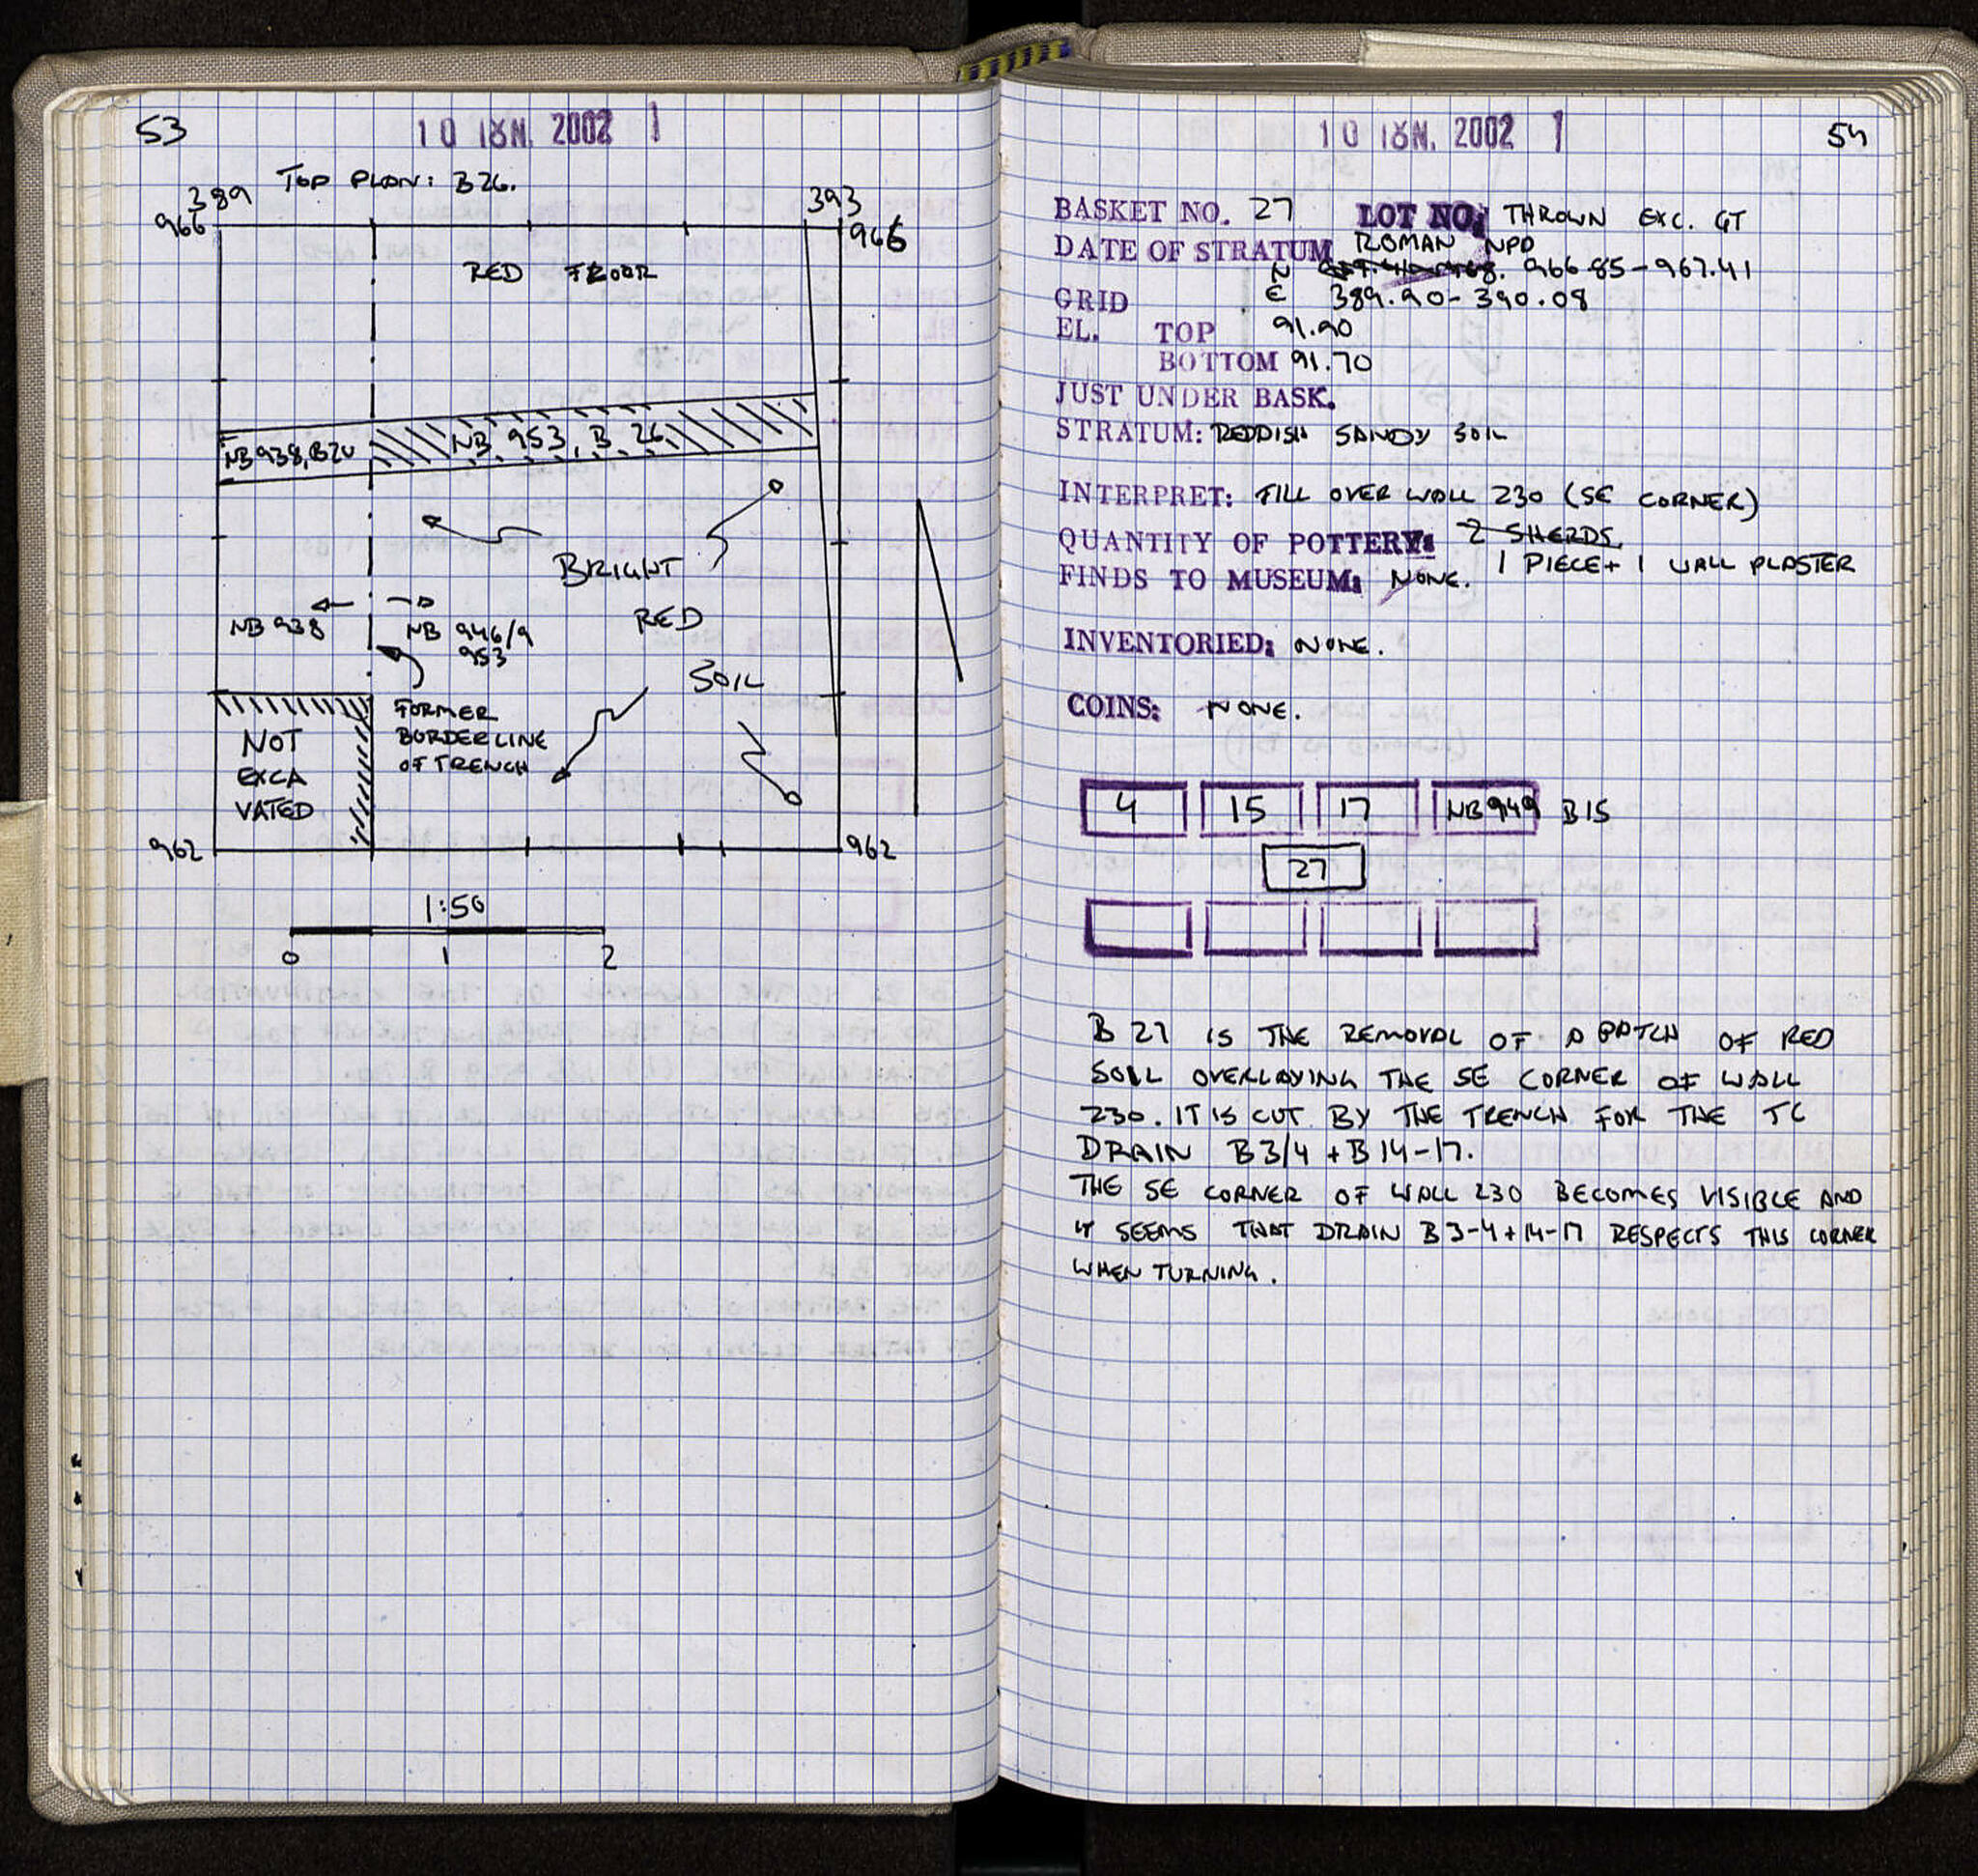 53
10 ΙΟΥΝ. 2002
TOP PLAN: B26.
389
393
966
966
RED FLOOR
NB 938, B20
NB 953, B 26
BRIGHT
RED
SOIL
NB 938
NB 946/9
953
FORMER
BORDERLINE
OF TRENCH
NOT
EXCA
VATED
962
962
1:50
0 1 2
10 ΙΟΥΝ. 2002
54
BASKET NO. 27 LOT NO: THROWN EXC. GT
DATE OF STRATUM ROMAN NPD
N 966.85-967.41
GRID E 389.90-390.08
EL. TOP 91.90
BOTTOM 91.70
JUST UNDER BASK.
STRATUM: REDDISH SANDY SOIL
INTERPRET: FILL OVER WALL 230 (SE CORNER)
QUANTITY OF POTTERY: 2 SHERDS,
1 PIECE + 1 WALL PLASTER
FINDS TO MUSEUM: NONE.
INVENTORIED: NONE.
COINS: NONE.
4 15 17 NB 949 B15
27
B 27 IS THE REMOVAL OF A PATCH OF RED
SOIL OVERLAYING THE SE CORNER OF WALL
230. IT IS CUT BY THE TRENCH FOR THE TC
DRAIN B3/4 + B14-17.
THE SE CORNER OF WALL 230 BECOMES VISIBLE AND
IT SEEMS THAT DRAIN B 3-4 + 14-17 RESPECTS THIS CORNER
WHEN TURNING.